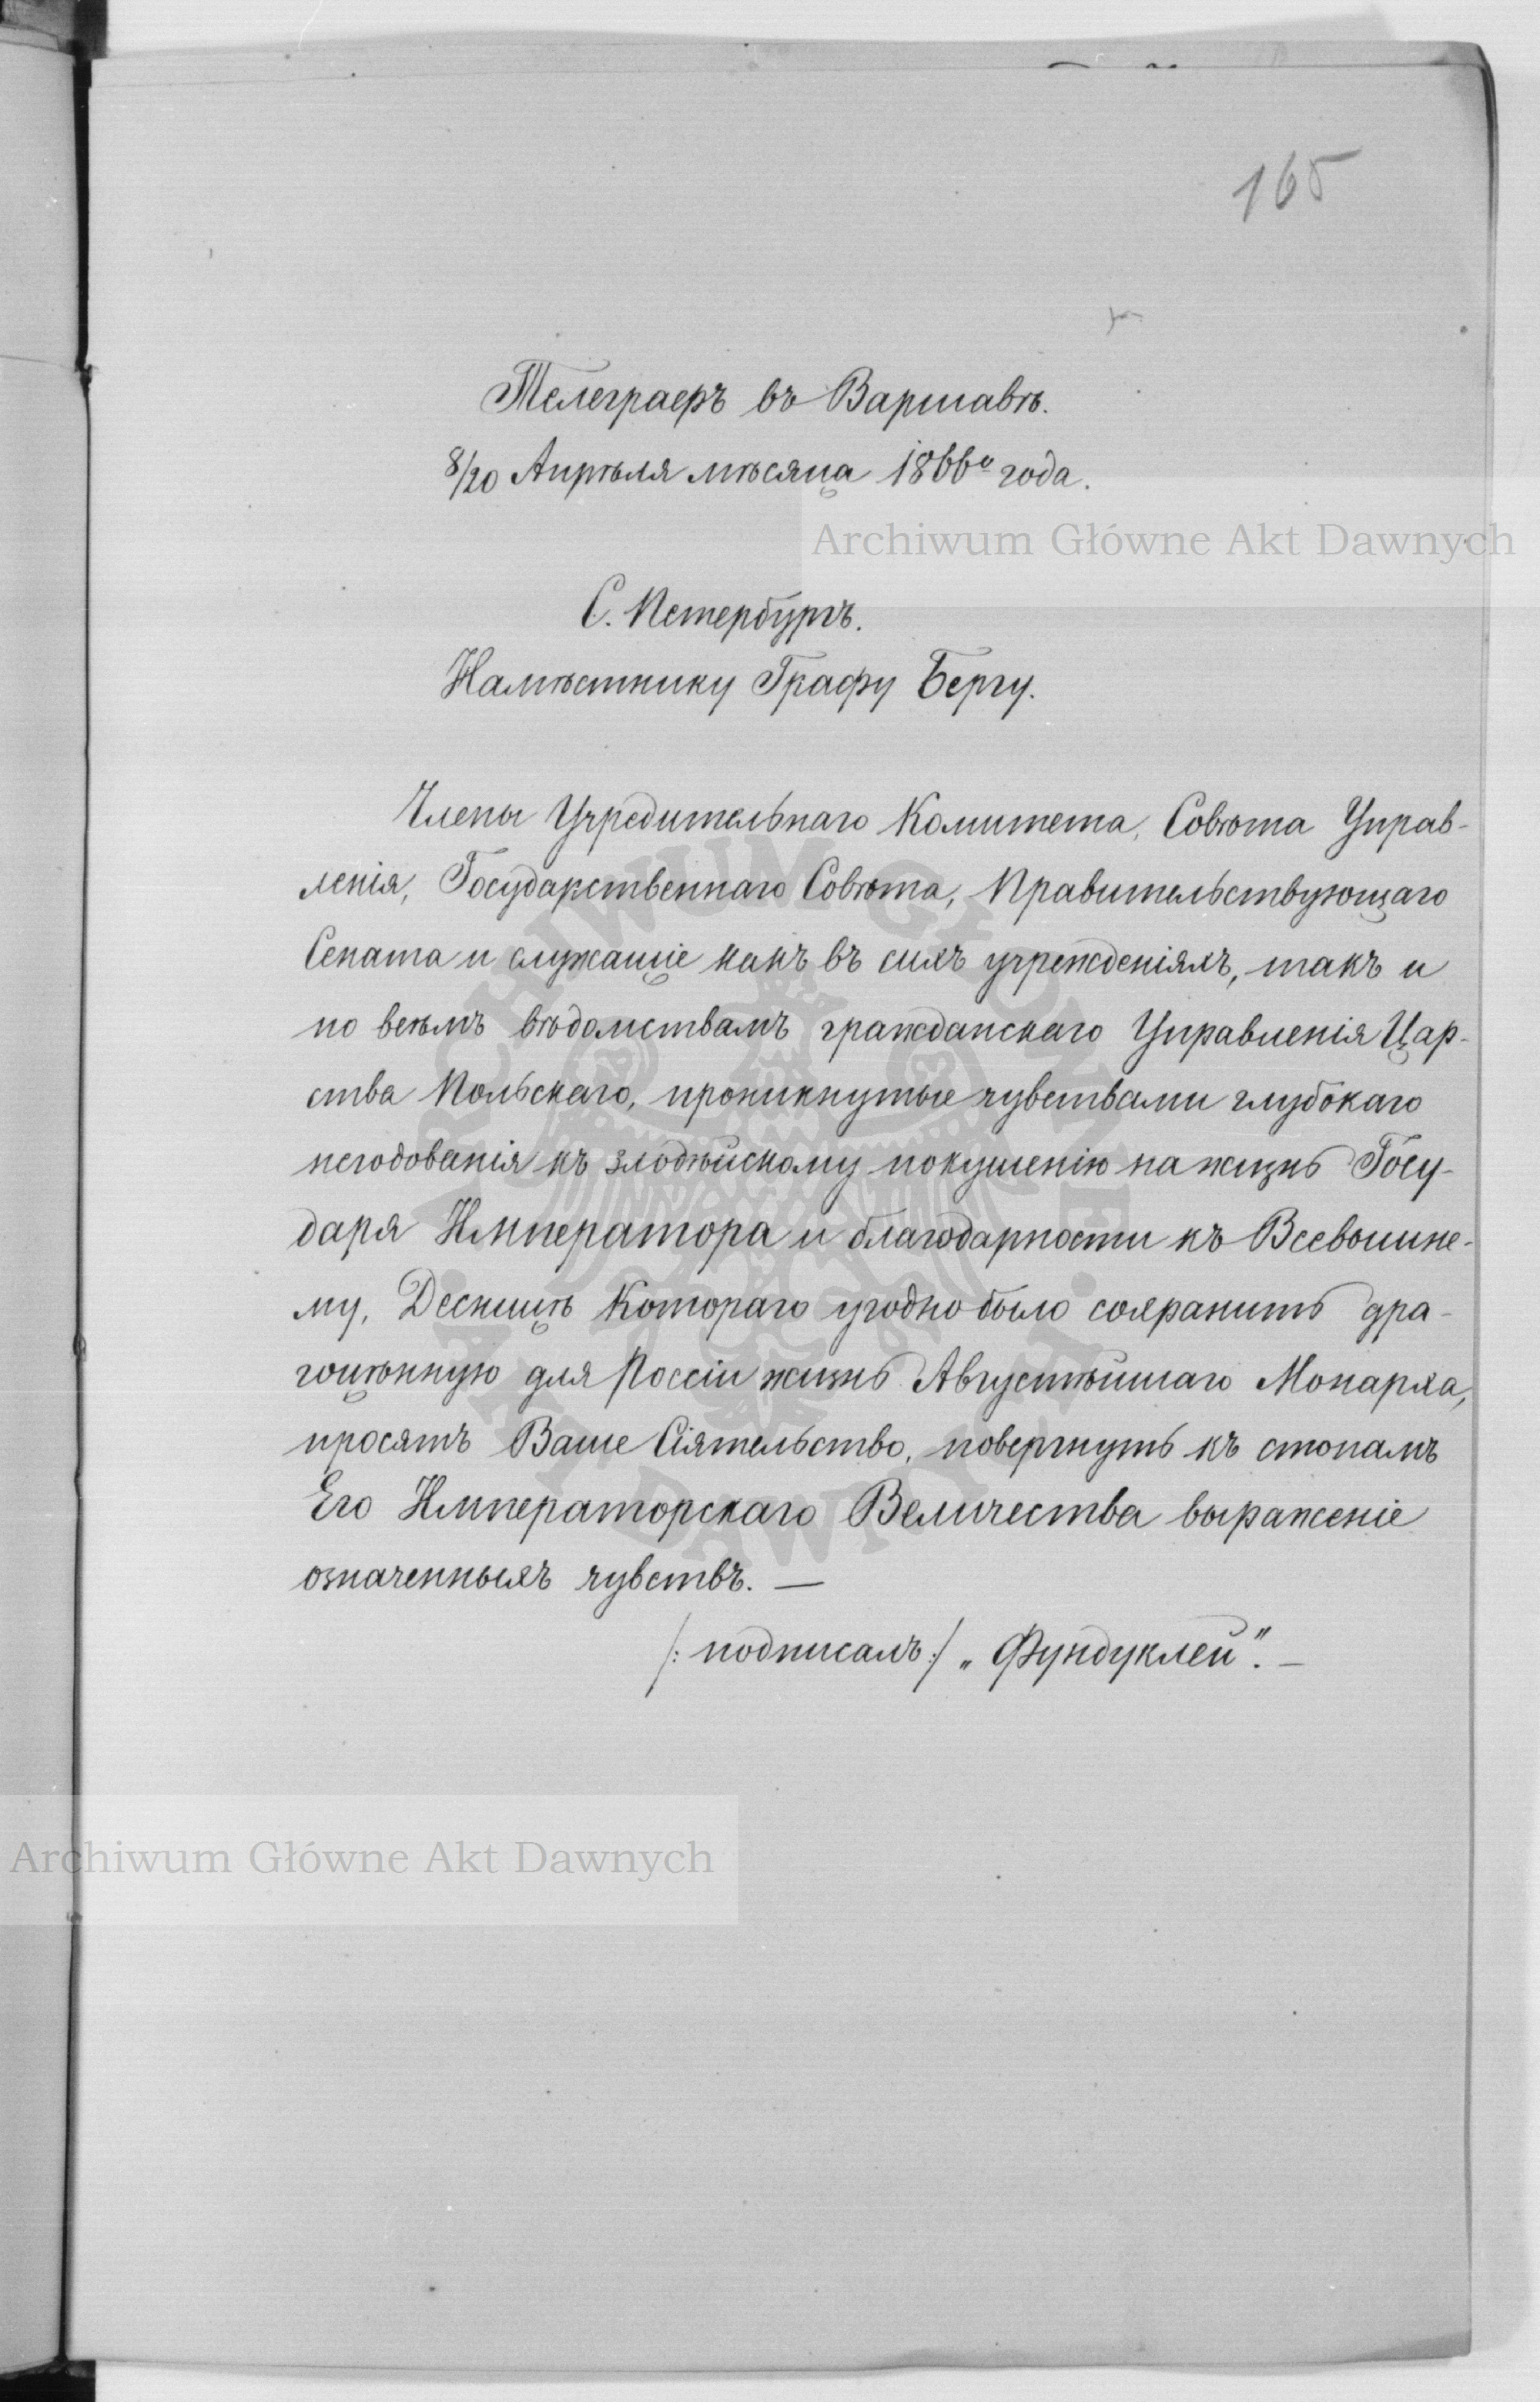 165
Телеграфъ въ Варшавѣ.
8/20 Апрѣля мѣсяца 1866го года.
Archiwum Główne Akt Dawnych
С. Петербургъ.
Намѣстнику Графу Бергу.
Члены Учредительнаго Комитета, Совѣта Управ-
ленія, Государственнаго Совѣта, Правительствующаго
Сената и служащіе какъ въ сихъ учрежденіяхъ, такъ и
по всѣмъ вѣдомствамъ гражданскаго Управленія Цар-
ства Польскаго, проникнутые чувствами глубокаго
негодованія къ злодѣйскому покушенію на жизнь Госу-
даря Императора и благодарности къ Всевышне-
му, Десницѣ Котораго угодно было сохранить дра-
гоцѣнную для Россіи жизнь Августѣйшаго Монарха,
просятъ Ваше Сіятельство, повергнуть къ стопамъ
Его Императорскаго Величества выраженіе
означенныхъ чувствъ. —
/: подписалъ :/ „Фундуклей". —
Archiwum Główne Akt Dawnych
ARCHIWUM GŁÓWNE
AKT DAWNYCH